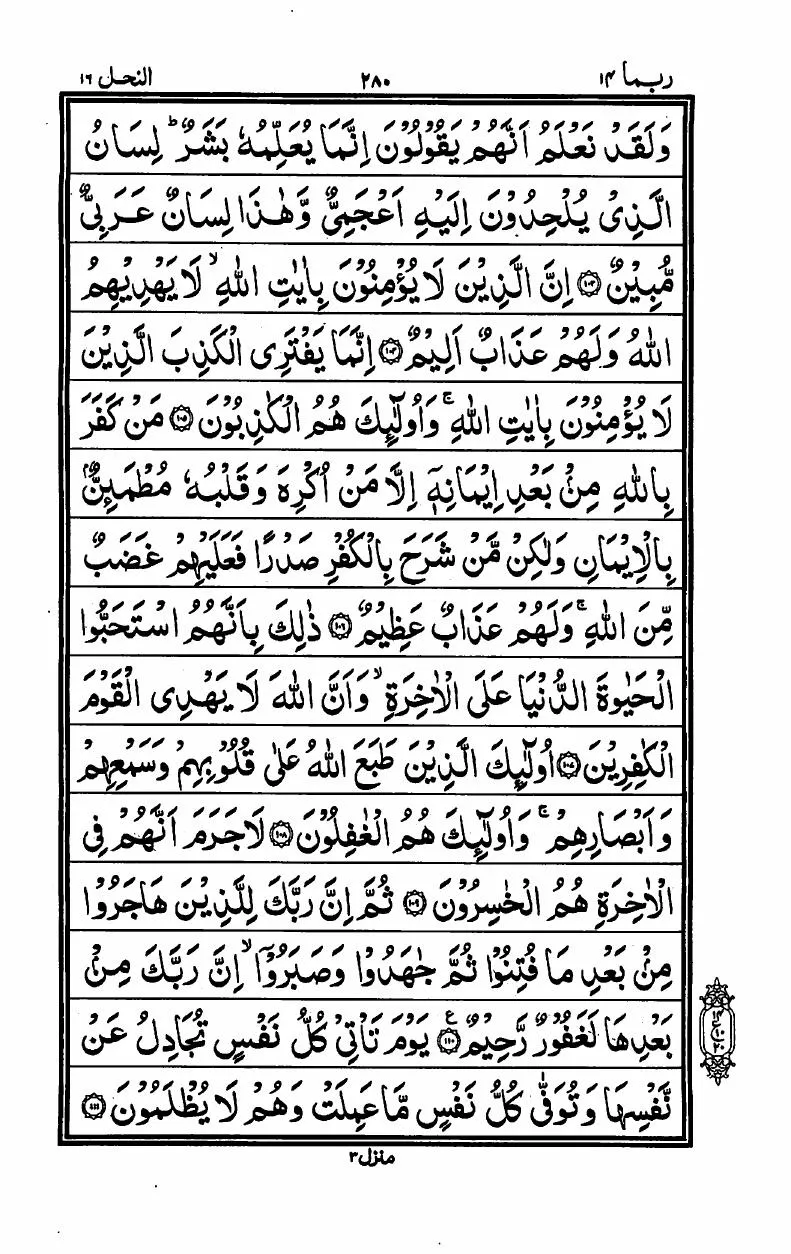 ربما ١۴ ٢٨٠ النحل ١٦
وَلَقَدْ نَعْلَمُ اَنَّهُمْ يَقُوْلُوْنَ اِنَّمَا يُعَلِّمُهٗ بَشَرٌ ؕ لِسَانُ
الَّذِيْ يُلْحِدُوْنَ اِلَيْهِ اَعْجَمِيٌّ وَّهٰذَا لِسَانٌ عَرَبِيٌّ
مُّبِيْنٌ ۝١٠٣ اِنَّ الَّذِيْنَ لَا يُؤْمِنُوْنَ بِاٰيٰتِ اللّٰهِ ۙ لَا يَهْدِيْهِمُ
اللّٰهُ وَلَهُمْ عَذَابٌ اَلِيْمٌ ۝١٠٤ اِنَّمَا يَفْتَرِى الْكَذِبَ الَّذِيْنَ
لَا يُؤْمِنُوْنَ بِاٰيٰتِ اللّٰهِ ۚ وَاُولٰٓئِكَ هُمُ الْكٰذِبُوْنَ ۝١٠٥ مَنْ كَفَرَ
بِاللّٰهِ مِنْۢ بَعْدِ اِيْمَانِهٖٓ اِلَّا مَنْ اُكْرِهَ وَقَلْبُهٗ مُطْمَئِنٌّۢ
بِالْاِيْمَانِ وَلٰكِنْ مَّنْ شَرَحَ بِالْكُفْرِ صَدْرًا فَعَلَيْهِمْ غَضَبٌ
مِّنَ اللّٰهِ ۚ وَلَهُمْ عَذَابٌ عَظِيْمٌ ۝١٠٦ ذٰلِكَ بِاَنَّهُمُ اسْتَحَبُّوا
الْحَيٰوةَ الدُّنْيَا عَلَى الْاٰخِرَةِ ۙ وَاَنَّ اللّٰهَ لَا يَهْدِى الْقَوْمَ
الْكٰفِرِيْنَ ۝١٠٧ اُولٰٓئِكَ الَّذِيْنَ طَبَعَ اللّٰهُ عَلٰى قُلُوْبِهِمْ وَسَمْعِهِمْ
وَاَبْصَارِهِمْ ۚ وَاُولٰٓئِكَ هُمُ الْغٰفِلُوْنَ ۝١٠٨ لَا جَرَمَ اَنَّهُمْ فِى
الْاٰخِرَةِ هُمُ الْخٰسِرُوْنَ ۝١٠٩ ثُمَّ اِنَّ رَبَّكَ لِلَّذِيْنَ هَاجَرُوْا
مِنْۢ بَعْدِ مَا فُتِنُوْا ثُمَّ جٰهَدُوْا وَصَبَرُوْٓا ۙ اِنَّ رَبَّكَ مِنْۢ
بَعْدِهَا لَغَفُوْرٌ رَّحِيْمٌ ۝١١٠ ع يَوْمَ تَاْتِيْ كُلُّ نَفْسٍ تُجَادِلُ عَنْ
نَّفْسِهَا وَتُوَفّٰى كُلُّ نَفْسٍ مَّا عَمِلَتْ وَهُمْ لَا يُظْلَمُوْنَ ۝١١١
منزل ٣